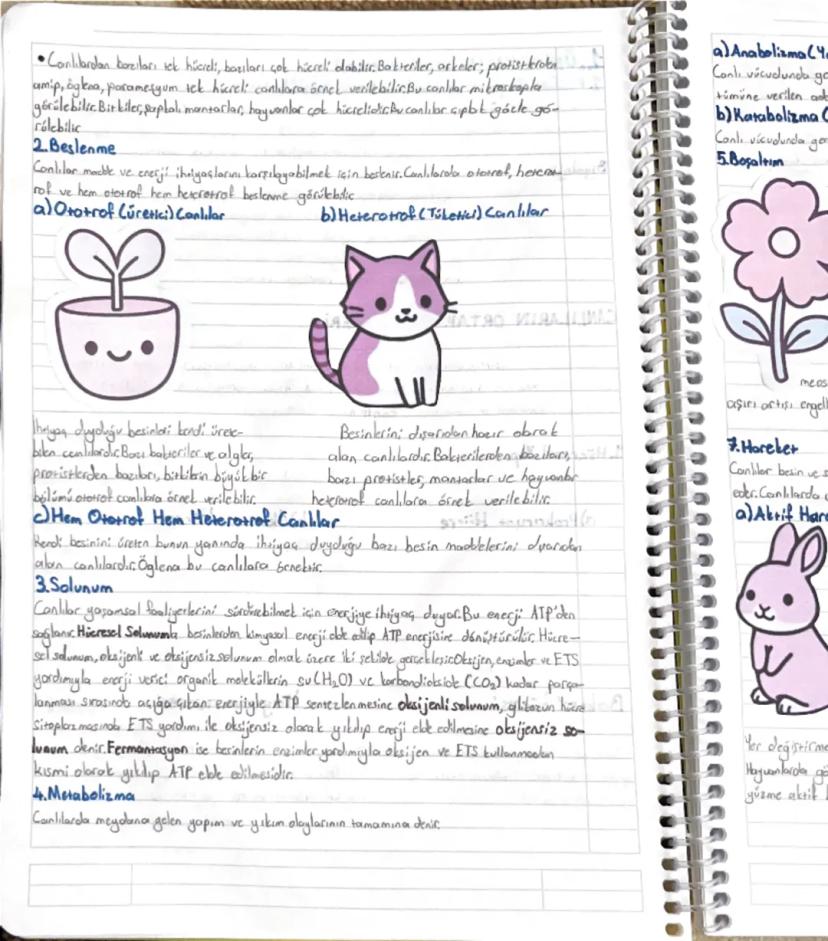 • Canlılardan bazıları tek hücreli, bazıları çok hücreli olabilir. Bakteriler, arkeler; protistlerden
amip, öglena, paramesyum tek hücreli canlılara örnek verilebilir. Bu canlılar mikroskopla
görülebilir. Bitkiler, şapkalı mantarlar, hayvanlar çok hücrelidir. Bu canlılar çıplak gözle gö-
rülebilir.
2.Beslenme
Canlılar madde ve enerji ihtiyaçlarını karşılayabilmek için beslenir. Canlılarda ototrof, heterot-
rof ve hem ototrof hem heterotrof beslenme görülebilir.
a) Ototrof (Üretici) Canlılar
b) Heterotrof (Tüketici) Canlılar
İhtiyaç duyduğu besinleri kendi ürete-
bilen canlılardır. Bazı bakteriler ve algler,
protistlerden bazıları, bitkilerin büyük bir
bölümü ototrof canlılara örnek verilebilir.
Besinlerini dışarıdan hazır olarak
alan canlılardır. Bakterilerden bazıları,
bazı protistler, mantarlar ve hayvanlar
heterotrof canlılara örnek verilebilir.
c) Hem Ototrof Hem Heterotrof Canlılar
Kendi besinini üreten bunun yanında ihtiyaç duyduğu bazı besin maddelerini dışarıdan
alan canlılardır. Öglena bu canlılara örnektir.
3.Solunum
Canlılar yaşamsal faaliyetlerini sürdürebilmek için enerjiye ihtiyaç duyar. Bu enerji ATP'den
sağlanır. Hücresel Solunumla besinlerden kimyasal enerji elde edilip ATP enerjisine dönüştürülür. Hücre-
sel solunum, oksijenli ve oksijensiz solunum olmak üzere iki şekilde gerçekleşir. Oksijen, enzimler ve ETS
yardımıyla enerji verici organik moleküllerin su (H₂O) ve karbondioksite (CO₂) kadar parça-
lanması sırasında açığa çıkan enerjiyle ATP sentezlenmesine oksijenli solunum, glikozun hücre
sitoplazmasında ETS yardımı ile oksijensiz olarak yıkılıp enerji elde edilmesine oksijensiz so-
lunum denir. Fermantasyon ise besinlerin enzimler yardımıyla oksijen ve ETS kullanmadan
kısmi olarak yıkılıp ATP elde edilmesidir.
4.Metabolizma
Canlılarda meydana gelen yapım ve yıkım olaylarının tamamına denir.
a) Anabolizma (
Canlı vücudunda
tümüne verilen
b) Katabolizma (
Canlı vücudunda
5.Boşaltım
aşırı artışı
7.Hareket
Canlılar besin ve
eder. Canlılarda
a) Aktif
Yer değiştirme
Hayvanlarda
yüzme aktif